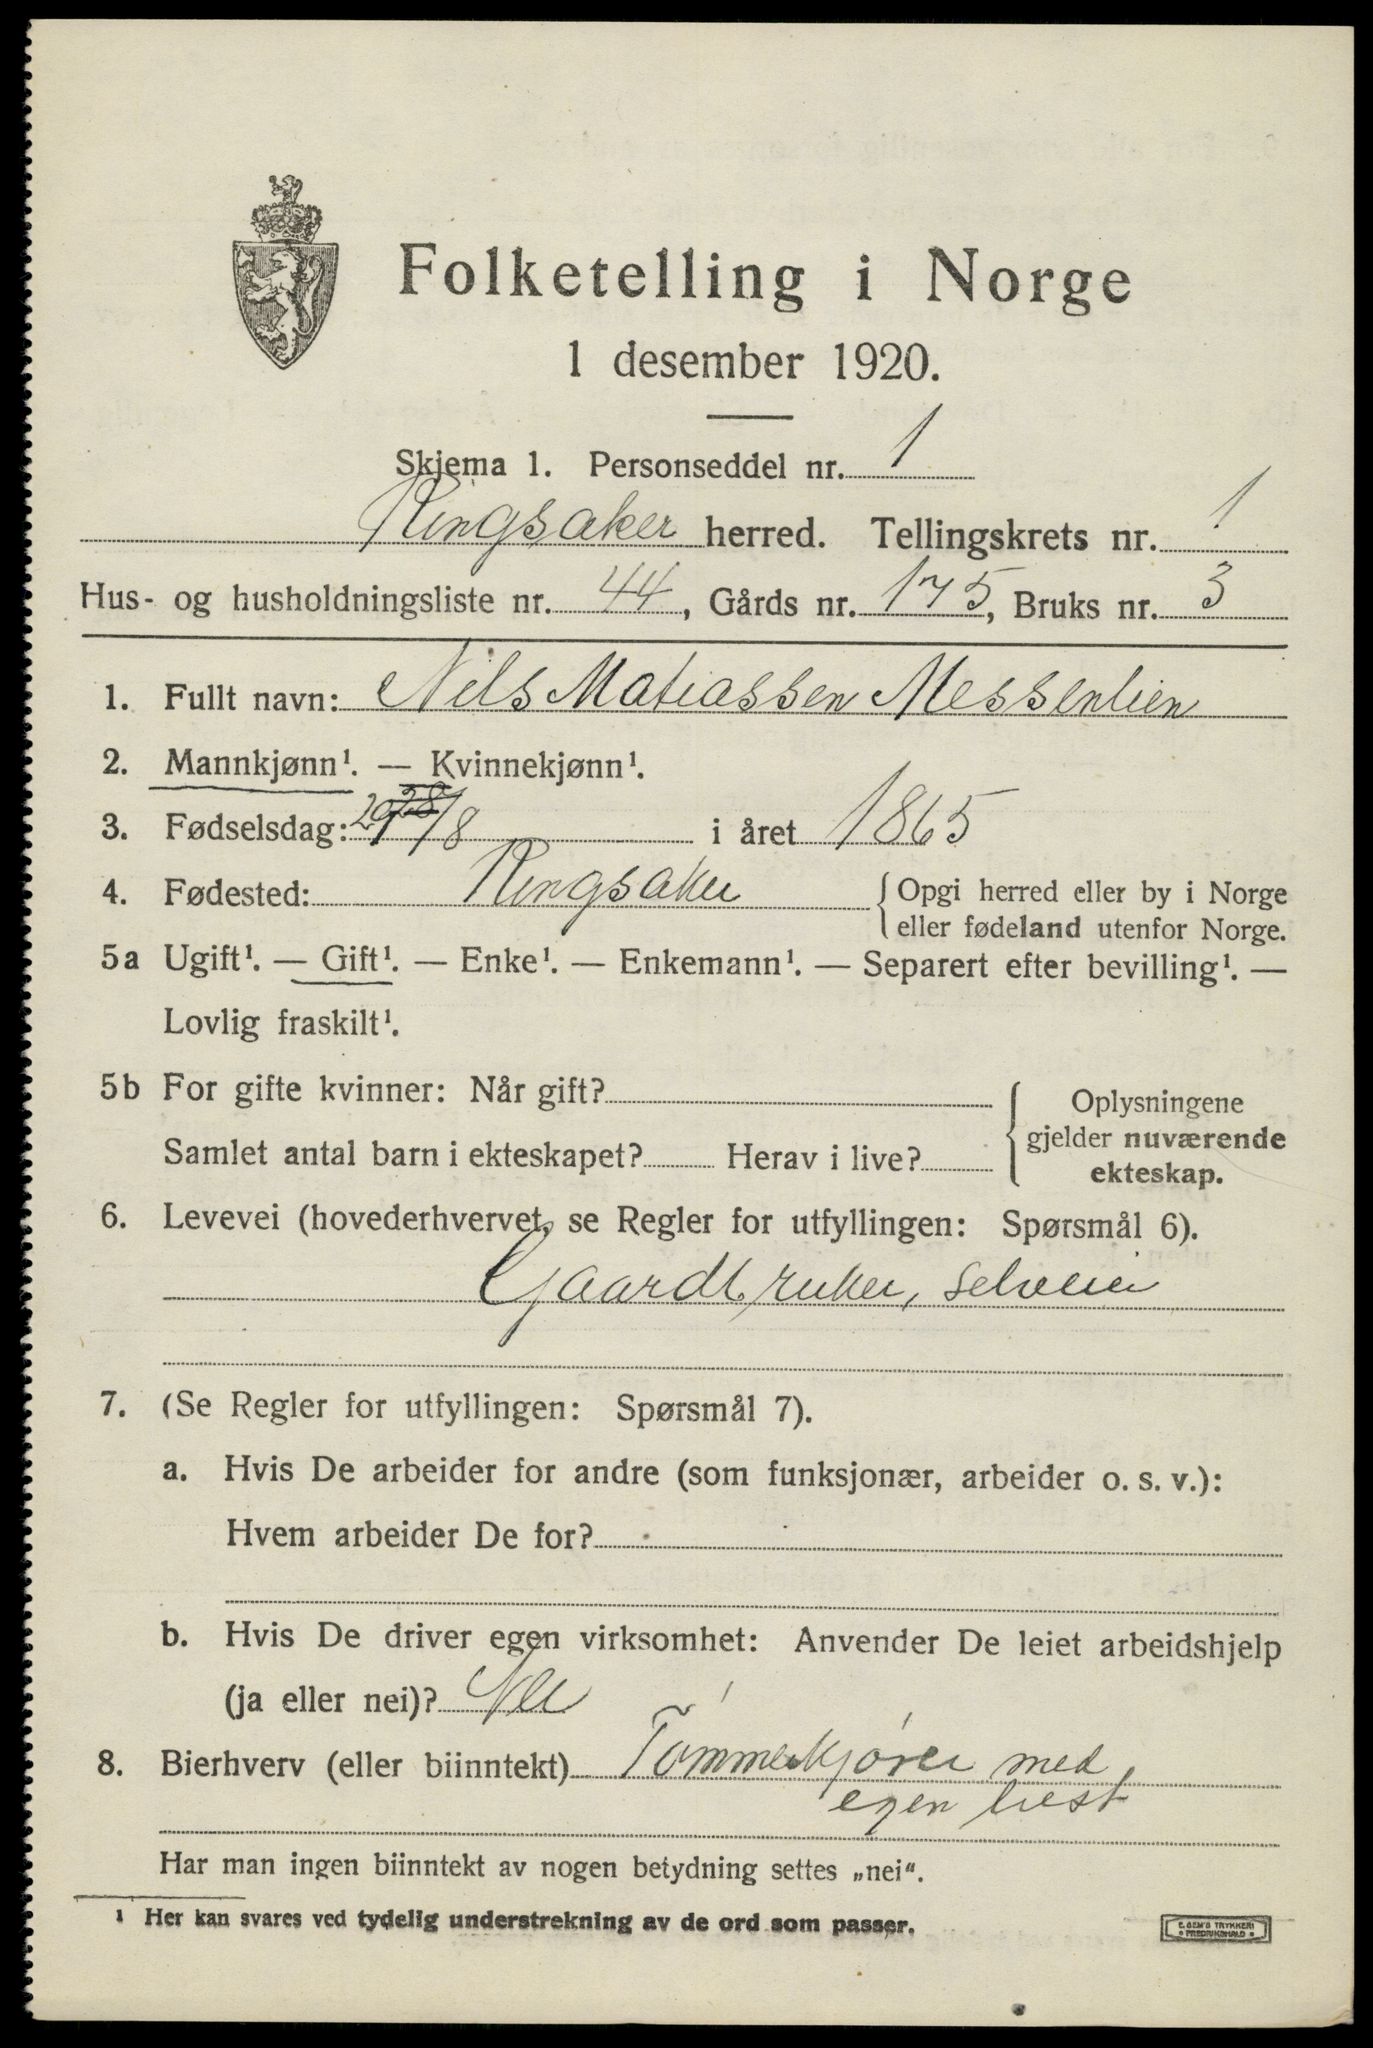 Folketelling i Norge
1 desember 1920.
Skjema 1. Personseddel nr. 1
Ringsaker herred. Tellingskrets nr. 1
Hus- og husholdningsliste nr. 44, Gårds nr. 175, Bruks nr. 3
1. Fullt navn: Nils Matiassen Messenlien
2. Mannkjønn¹. — Kvinnekjønn¹.
3. Fødselsdag: 29/8 i året 1865
4. Fødested: Ringsaker { Opgi herred eller by i Norge
eller fødeland utenfor Norge.
5a Ugift¹. — Gift¹. — Enke¹. — Enkemann¹. — Separert efter bevilling¹. —
Lovlig fraskilt¹.
5b For gifte kvinner: Når gift?
Samlet antal barn i ekteskapet? Herav i live?
Oplysningene
gjelder nuværende
ekteskap.
6. Levevei (hovederhvervet, se Regler for utfyllingen: Spørsmål 6).
Gaardbruker, selveier
7. (Se Regler for utfyllingen: Spørsmål 7).
a. Hvis De arbeider for andre (som funksjonær, arbeider o. s. v.):
Hvem arbeider De for?
b. Hvis De driver egen virksomhet: Anvender De leiet arbeidshjelp
(ja eller nei)? Nei
8. Bierhverv (eller biinntekt) Tømmerkjører med
egen hest
Har man ingen biinntekt av nogen betydning settes „nei“.
¹ Her kan svares ved tydelig understrekning av de ord som passer.
E. SEM'S TRYKKERI
FREDRIKSHALD